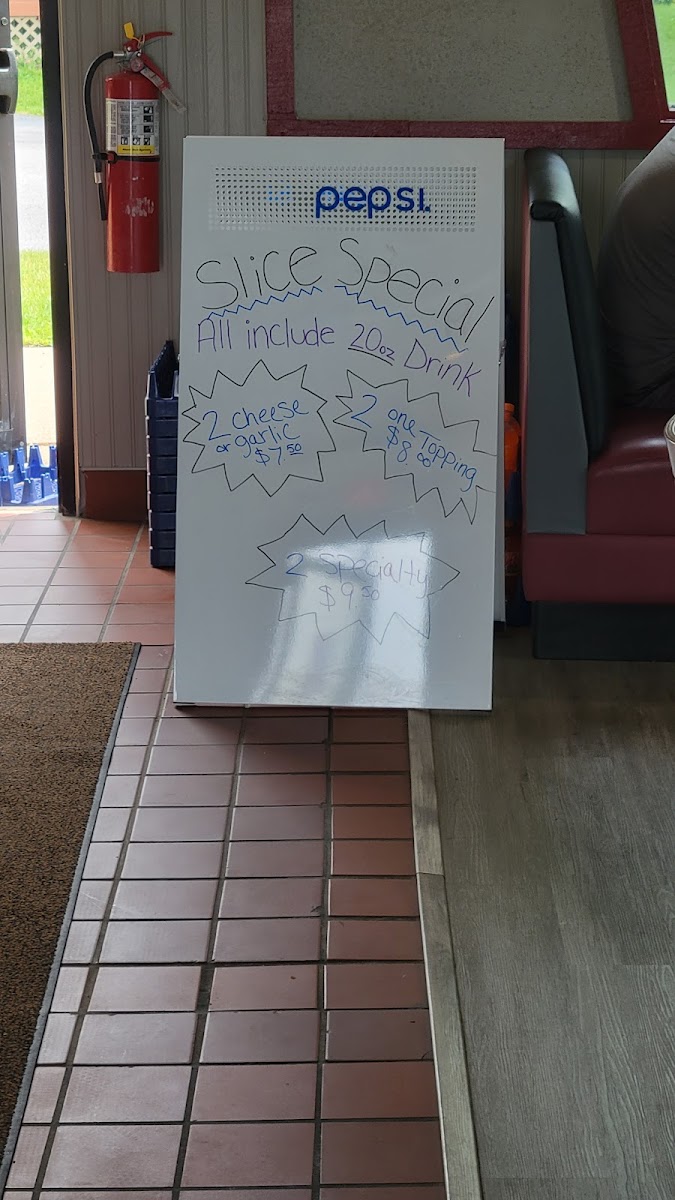 pepsi.
Slice Special
All include 20oz Drink
2 cheese
or garlic
$7.50
2 one Topping
$8.00
2 specialty
$9.50